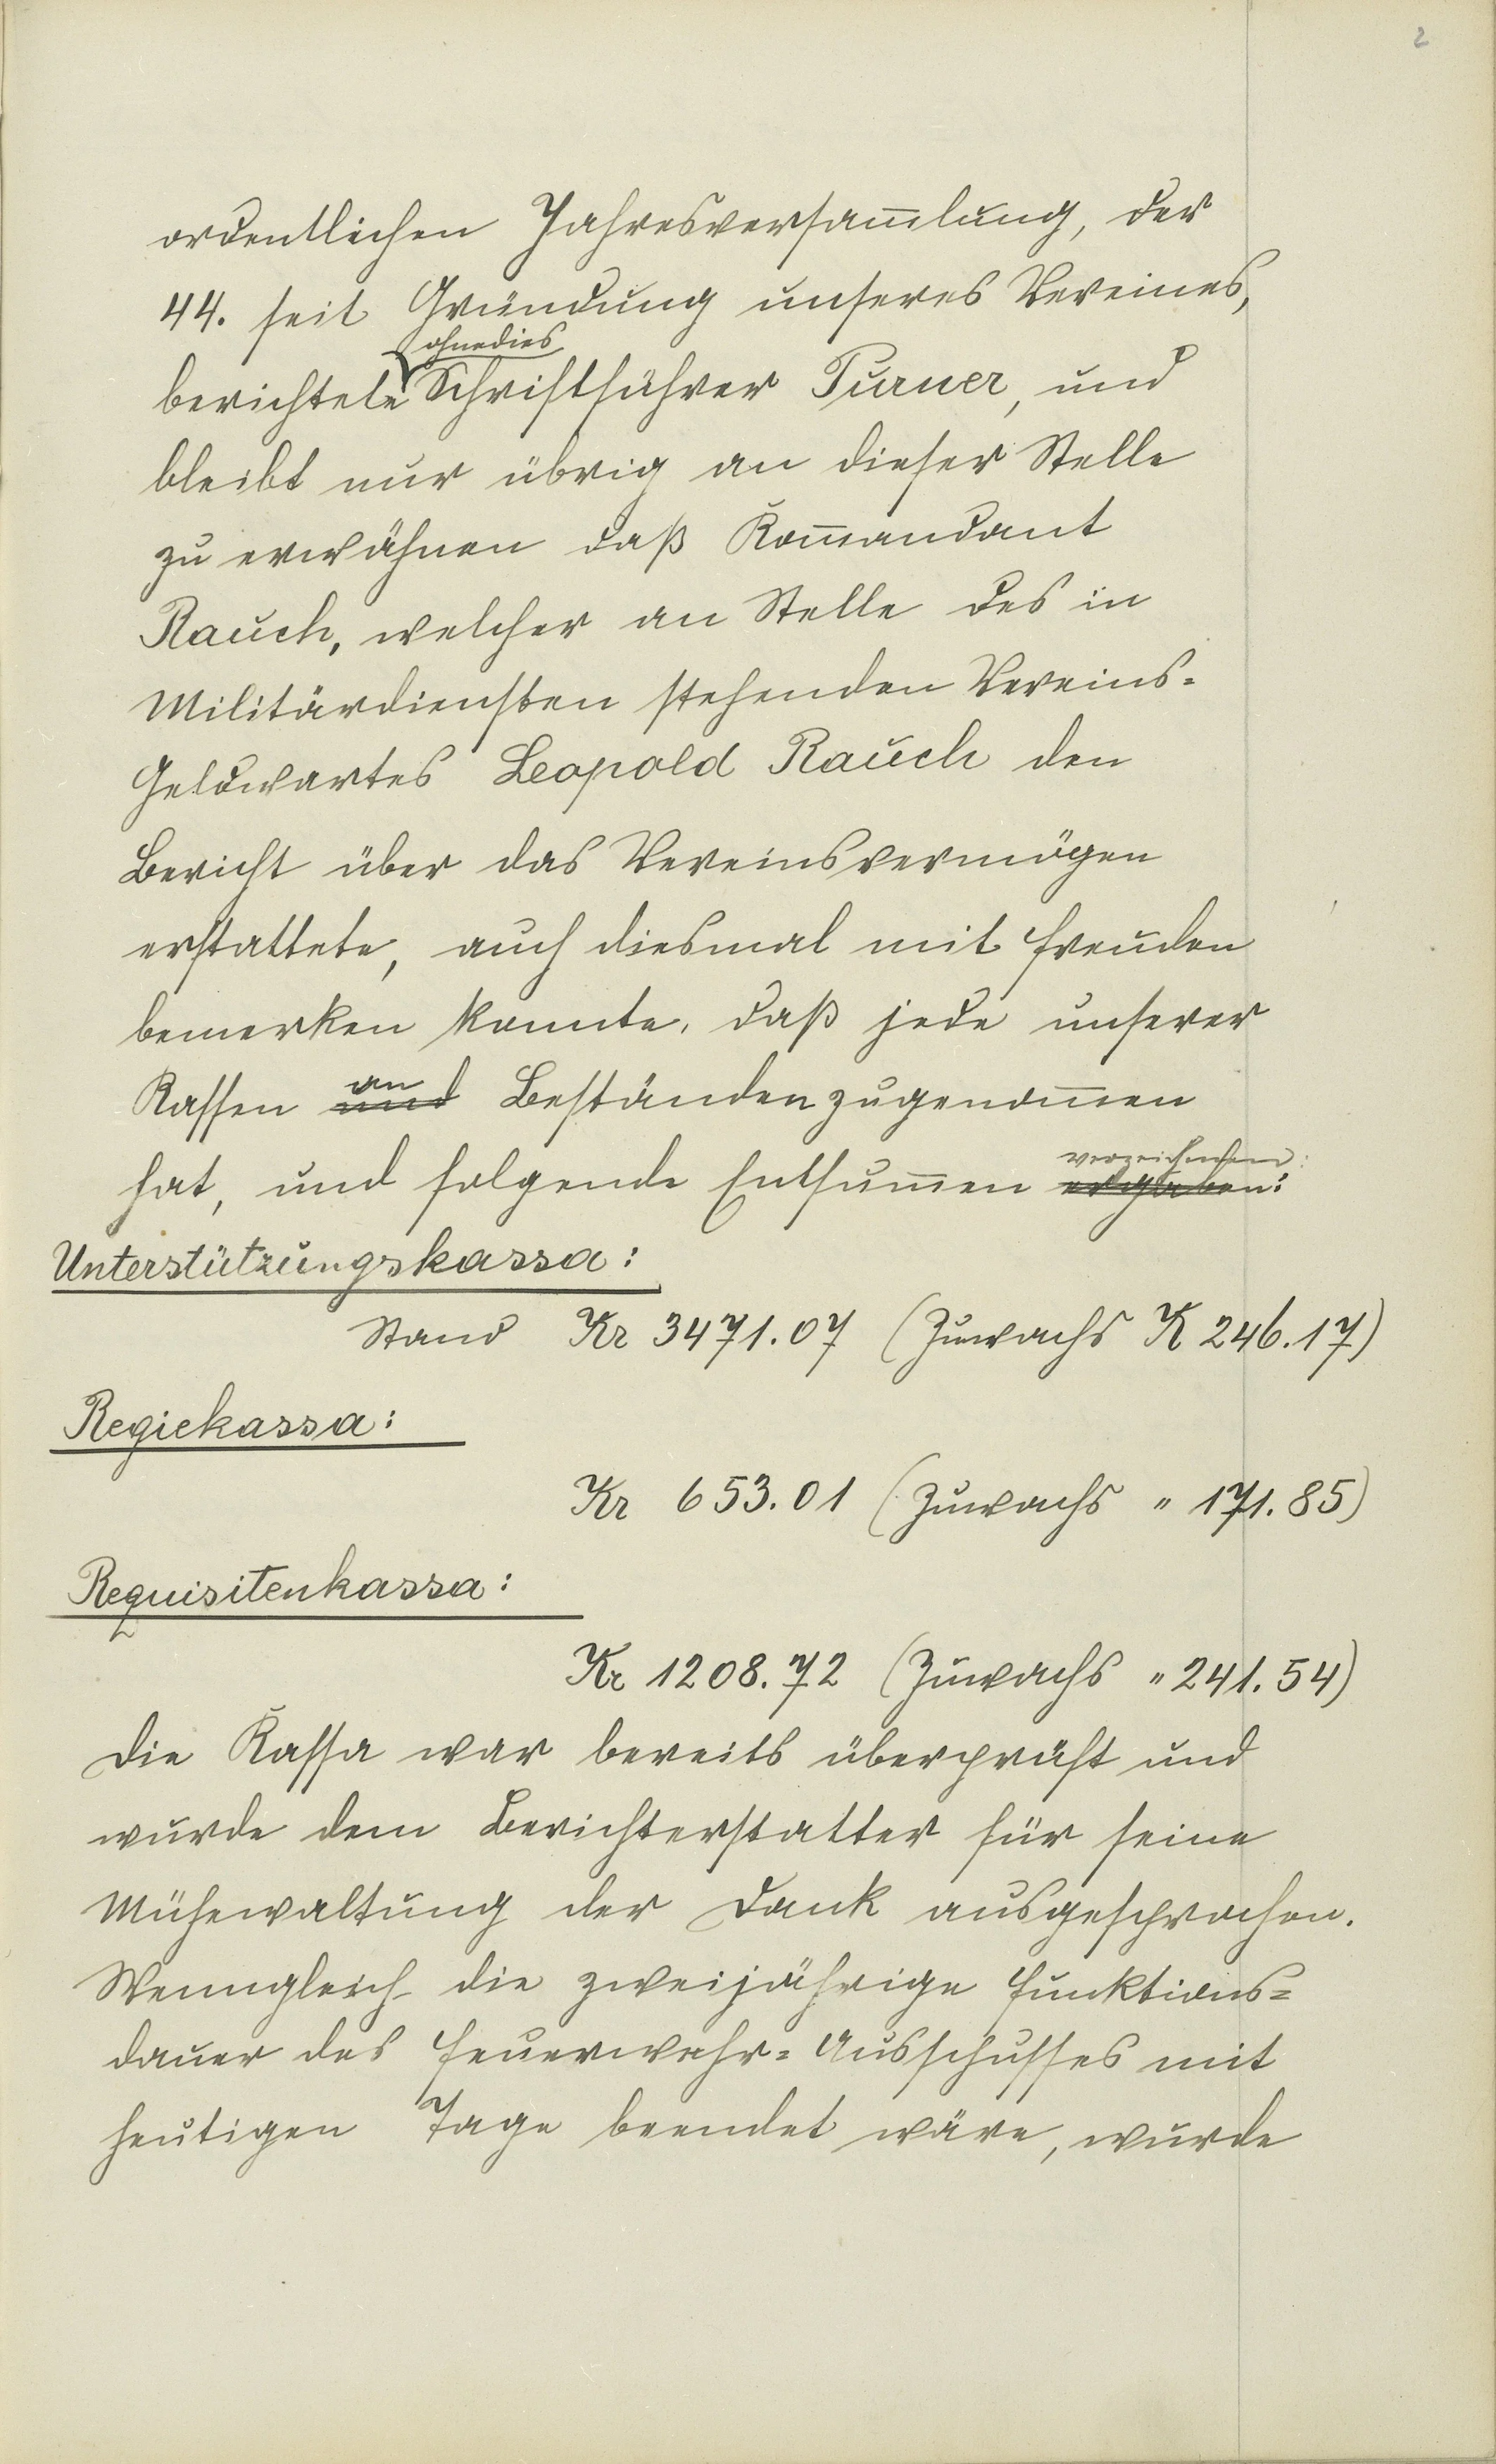 2
ordentlichen Jahresversam̄lung, der
44. seit Gründung unseres Vereines,
ohnedies
berichtete Schriftführer Turner, und
bleibt nur übrig an dieser Stelle
zu erwähnen daß Kom̄andant
Rauch, welcher an Stelle des in
Militärdiensten stehenden Vereins-
Geldwartes Leopold Rauch den
Bericht über das Vereinsvermögen
erstattete, auch diesmal mit Freuden
bemerken konnte, daß jede unserer
an
Kassen und Beständen zugenom̄en
verzeichnen:
hat, und folgende Entsum̄en ergaben:
Unterstützungskassa:
Stand Kr 3471.07 (Zuwachs K 246.17)
Regiekassa:
Kr 653.01 (Zuwachs " 171.85)
Requisitenkassa:
Kr 1208.72 (Zuwachs " 241.54)
Die Kassa war bereits überprüft und
wurde dem Berichterstatter für seine
Mühewaltung der Dank ausgesprochen.
Wenngleich die zweijährige Funktions-
dauer des Feuerwehr-Ausschusses mit
heutigen Tage beendet wäre, wurde